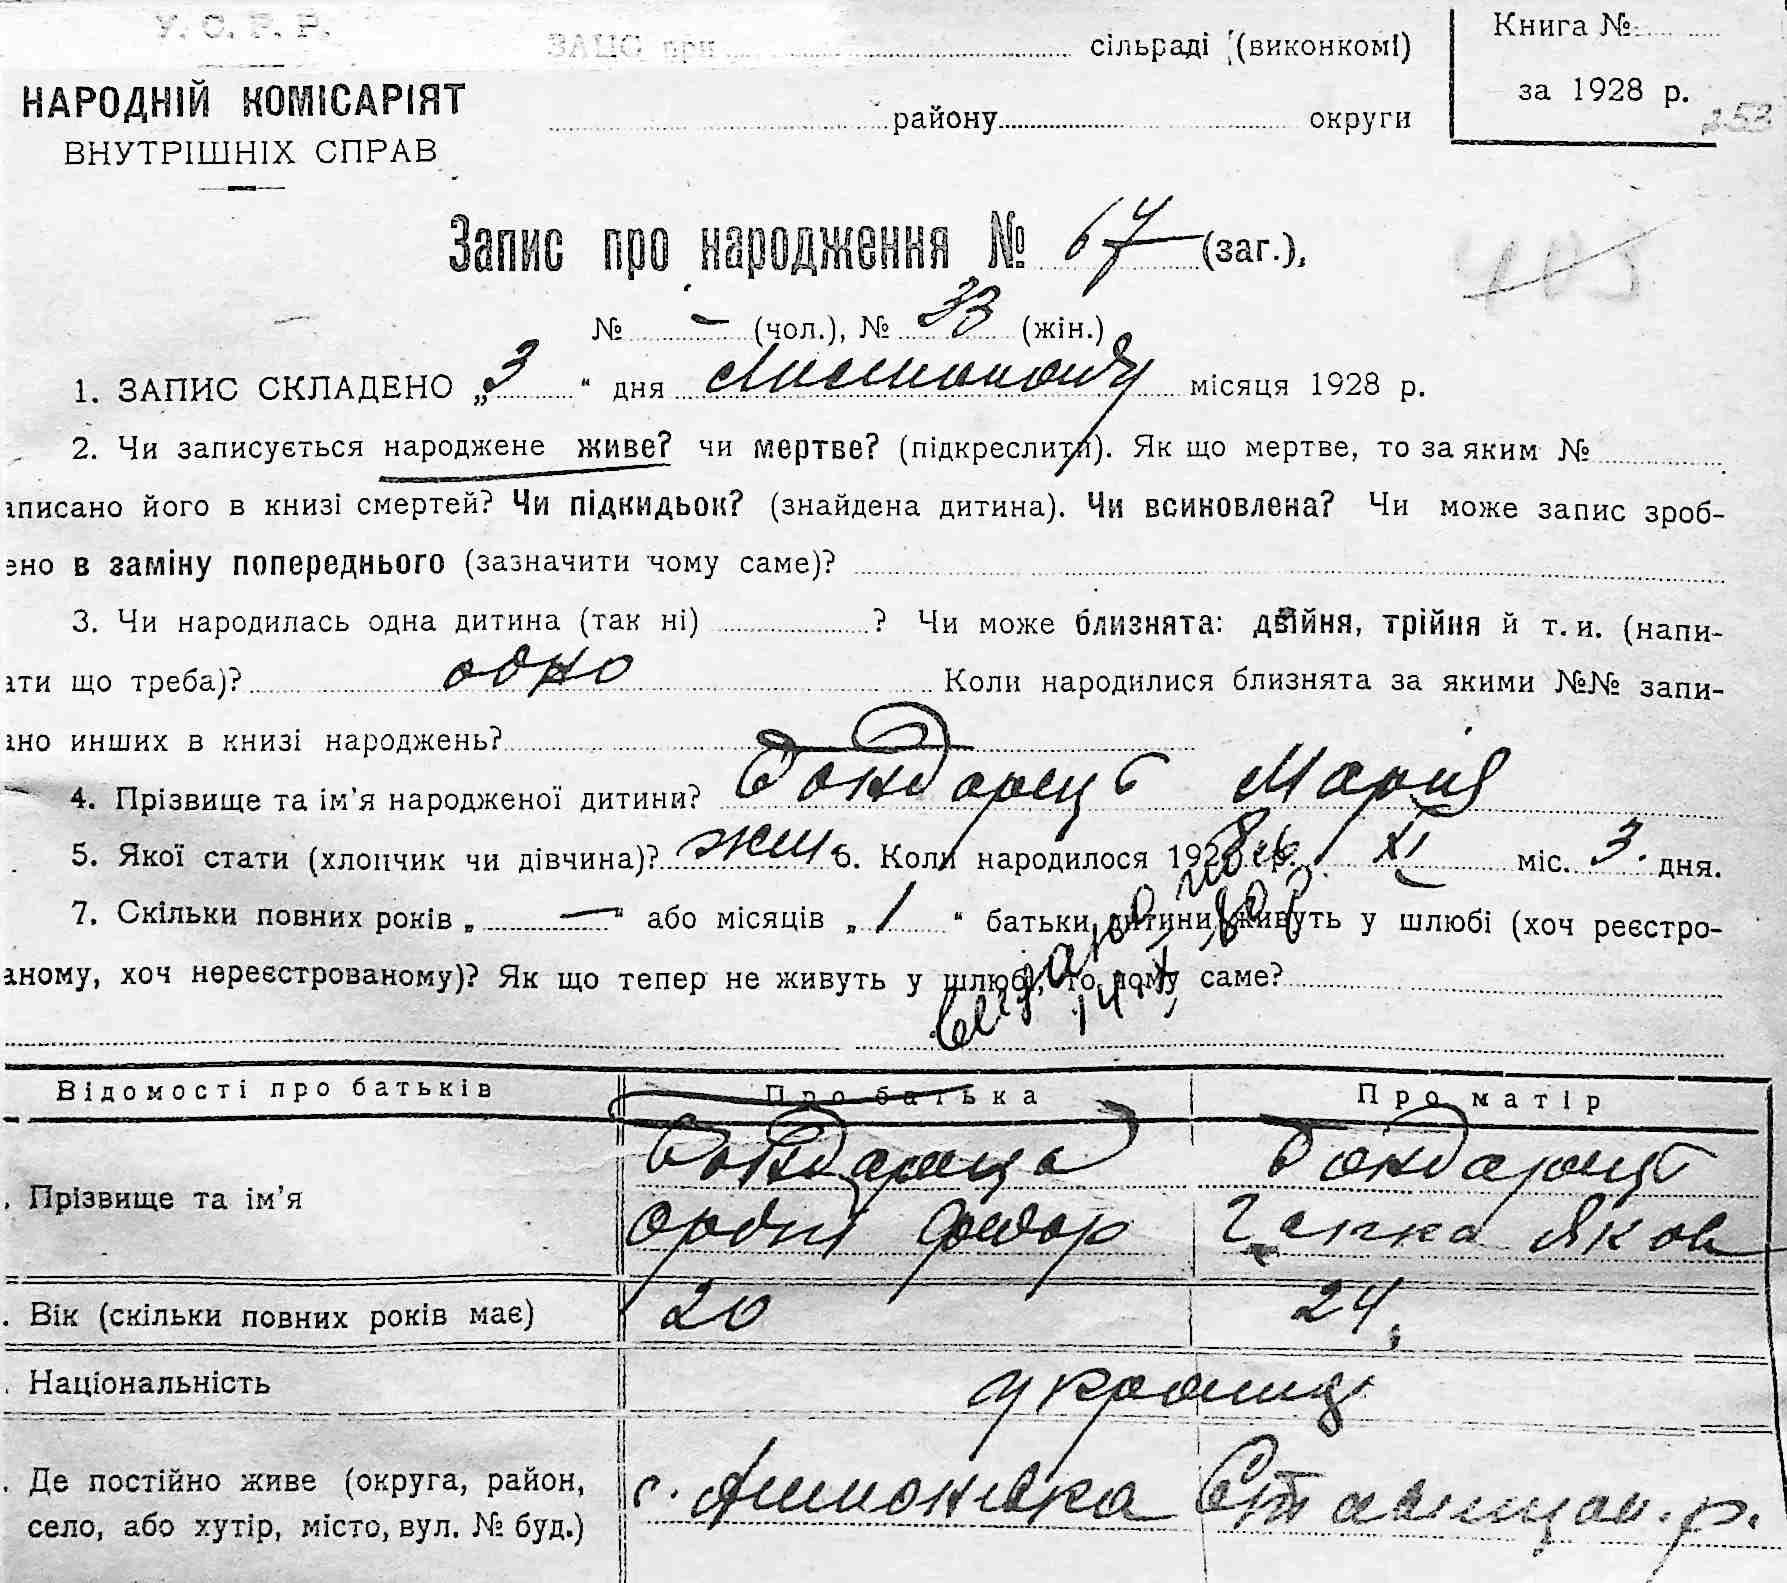 У. С. Р. Р.
ЗАЦС при сільраді (виконкомі)
Книга №
за 1928 р.
253
НАРОДНІЙ КОМІСАРІЯТ
району округи
ВНУТРІШНІХ СПРАВ
Запис про народження № 67 (заг.),
403
№ – (чол.), № 33 (жін.)
1. ЗАПИС СКЛАДЕНО „3“ дня Листопаду місяця 1928 р.
2. Чи записується народжене живе? чи мертве? (підкреслити). Як що мертве, то за яким №
аписано його в книзі смертей? Чи підкидьок? (знайдена дитина). Чи всиновлена? Чи може запис зроб-
ено в заміну попереднього (зазначити чому саме)?
3. Чи народилась одна дитина (так ні) ? Чи може близнята: двійня, трійня й т. и. (напи-
ати що треба)? одно Коли народилися близнята за якими №№ запи-
ано инших в книзі народжень?
4. Прізвище та ім’я народженої дитини? Бондарець Мария
5. Якої стати (хлопчик чи дівчина)? жин. 6. Коли народилося 1928 р. XI міс. 3. дня.
7. Скільки повних років „ — “ або місяців „ 1 “ батьки дитини живуть у шлюбі (хоч реєстро-
аному, хоч нереєстрованому)? Як що тепер не живуть у шлюбі, то чому саме?
Відомості про батьків Про батька Про матір
. Прізвище та ім’я Бондарець Бондарець
Федор Ганна Яков
. Вік (скільки повних років має) 20 24,
. Національність україн
. Де постійно живе (округа, район,
село, або хутір, місто, вул. № буд.) с. Антонівка Ставищан. р.